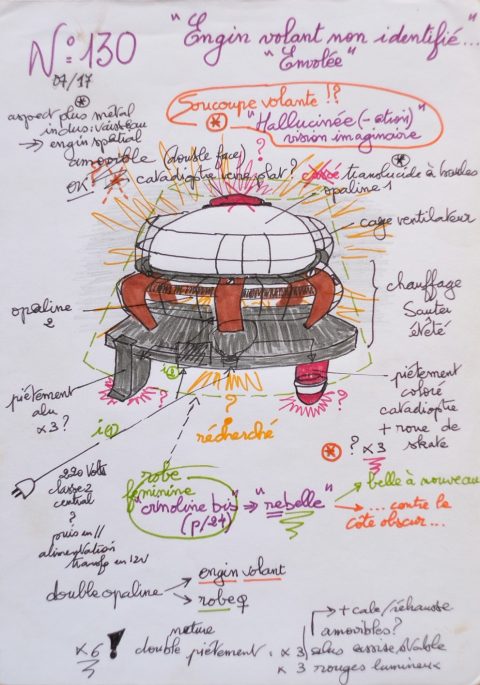 N°:130
07/17
"Engin volant non identifié...
"Envolée"
aspect plus métal
inclus: vaisseau
→ engin spatial
Soucoupe volante !?
"Hallucinée (-ation)"
vision imaginaire
amovible (double face)
?
OK
catadioptre verre plat? translucide à boules
opaline 1
cage ventilateur
chauffage
Sauter
évêté
opaline
2
piétement
alu
x3?
piétement
coloré
catadioptre
+ roue de
skate
? x3
i②
i①
?
recherché
?
?
220 Volts
classe 2
central
?
puis en //
alimentation
transfo en 12V
robe
féminine
"crinoline bis"
(p/24)
→ "rebelle"
belle à nouveau
... contre le
côté obscur...
double opaline
engin volant
robe ♀
x6 !
nature
double piétement: x3
+ cale/réhausse
amovibles?
assise stable
x 3 rouges lumineux